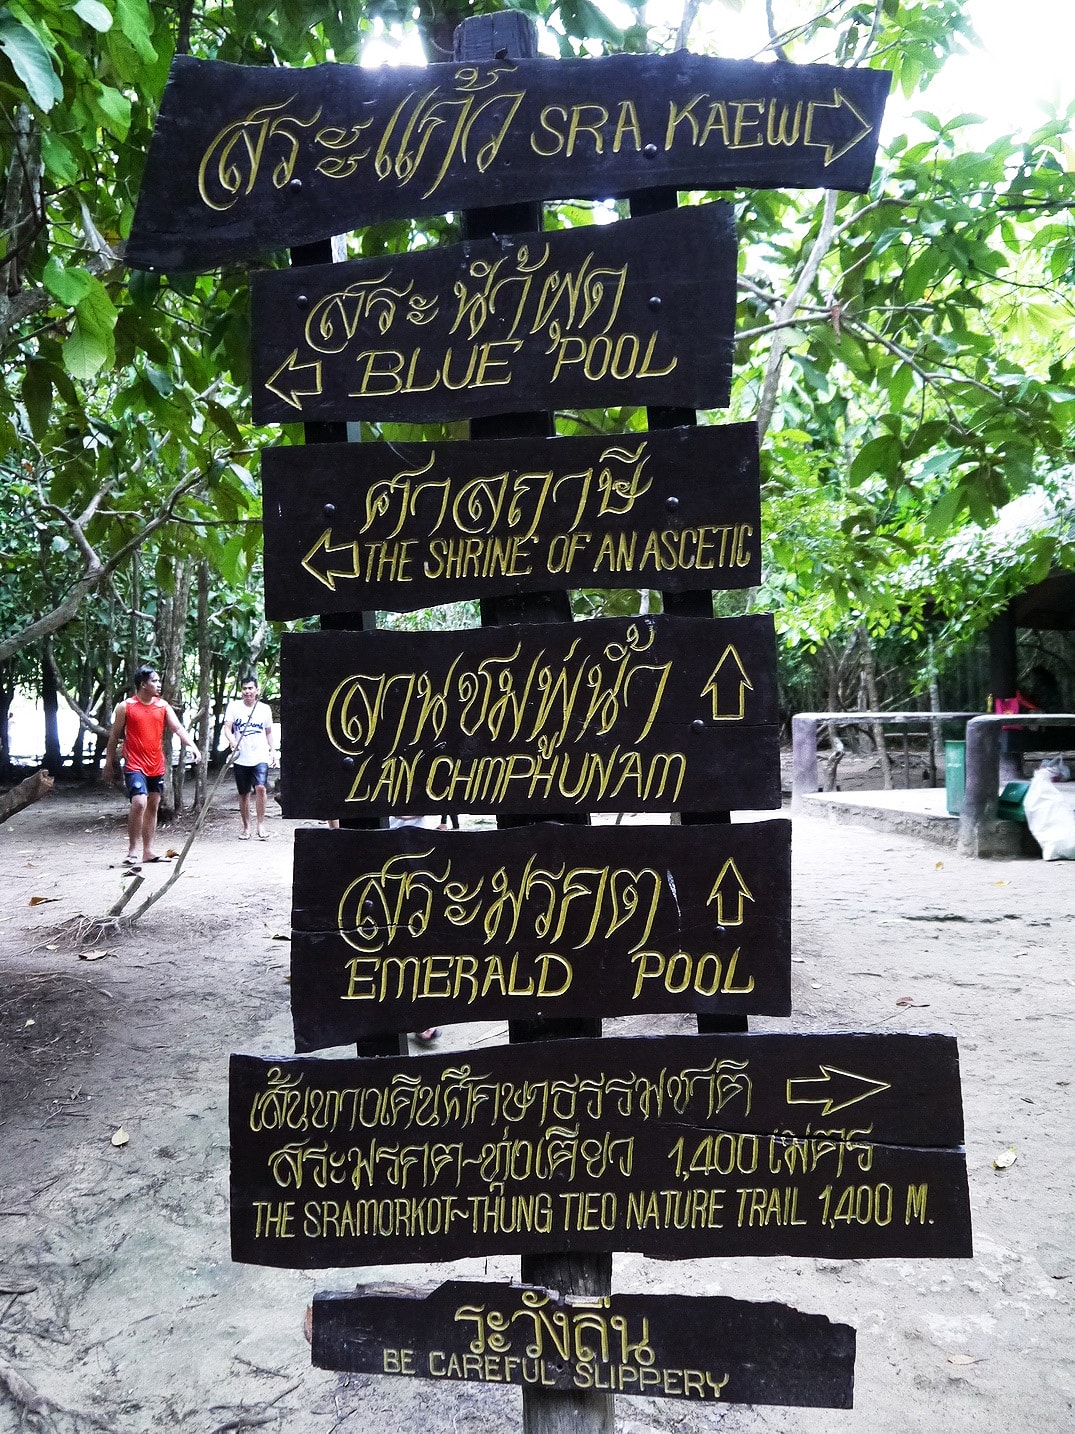 สระแก้ว SRA KAEW
สระน้ำผุด
BLUE POOL
ศาลฤาษี
THE SHRINE OF AN ASCETIC
ลานชมพูน้ำ
LAN CHMPHUNAM
สระมรกต
EMERALD POOL
เส้นทางเดินศึกษาธรรมชาติ
สระมรกต~ทุ่งเตียว 1,400 เมตร
THE SRAMORKOT~THUNG TIEO NATURE TRAIL 1,400 M.
ระวังลื่น
BE CAREFUL SLIPPERY